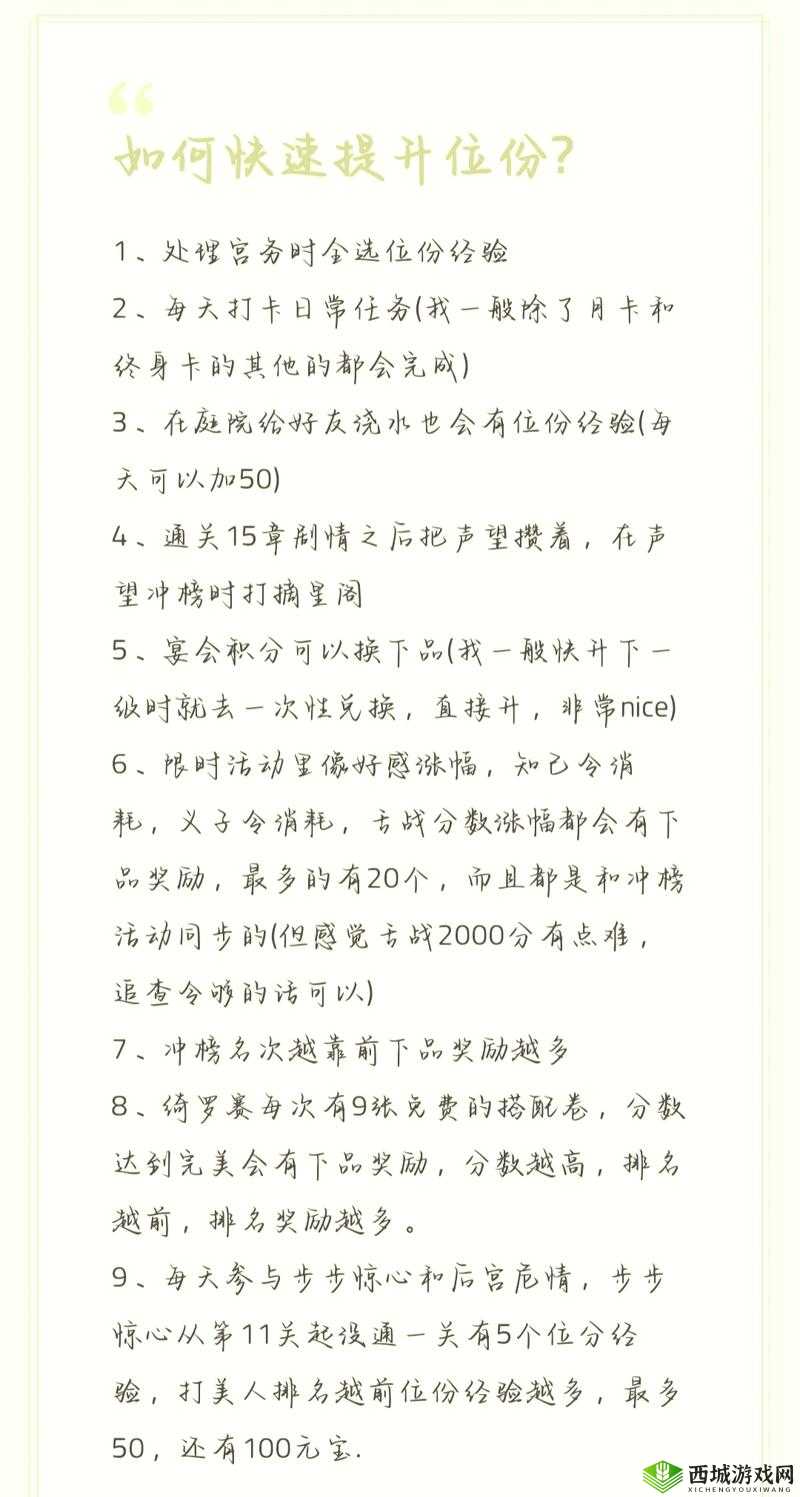 “
如何快速提升位份?
1、处理宫务时全选位份经验
2、每天打卡日常任务(我一般除了月卡和
终身卡的其他的都会完成)
3、在庭院给好友浇水也会有位份经验(每
天可以加50)
4、通关15章剧情之后把声望攒着，在声
望冲榜时打摘星阁
5、宴会积分可以换下品(我一般快升下一
级时就去一次性兑换，直接升，非常nice)
6、限时活动里像好感涨幅，知己令消
耗，义子令消耗，舌战分数涨幅都会有下
品奖励，最多的有20个，而且都是和冲榜
活动同步的(但感觉舌战2000分有点难，
追查令够的话可以)
7、冲榜名次越靠前下品奖励越多
8、绮罗赛每次有9张免费的搭配卷，分数
达到完美会有下品奖励，分数越高，排名
越前，排名奖励越多。
9、每天参与步步惊心和后宫危情，步步
惊心从第11关起没通一关有5个位分经
验，打美人排名越前位份经验越多，最多
50，还有100元宝.
西城游戏网
XICHENGYOUXIWANG